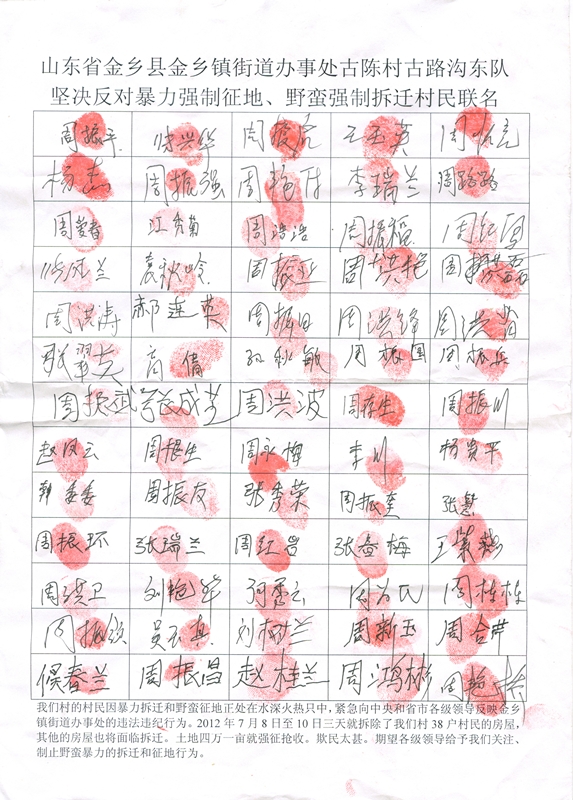 山东省金乡县金乡镇街道办事处古陈村古路沟东队
坚决反对暴力强制征地、野蛮强制拆迁村民联名
周振平 陈兴华 周 王玉英 周
杨 周振强 周艳 李瑞兰 周路路
周 江秀菊 周浩浩 周振福 周红
风兰 袁秋岭 周振 周洪艳 周
周洪涛 郝连英 周振 周洪锋 周洪
张翠 高倩 孙秋敏 周振国 周振兵
周振武 张成芝 周洪波 周存生 周振川
赵凤云 周振生 周永梅 李川 杨贵平
韩委委 周振友 张秀荣 周振奎 张慧
周振环 张瑞兰 周红岩 张春梅 王
周洪卫 刘艳华 秀云 周为民 周栋栋
周振 吴玉真 刘树兰 周新玉 周合
侯春兰 周振昌 赵桂兰 周鸿彬 周艳
我们村的村民因暴力拆迁和野蛮征地正处在水深火热只中，紧急向中央和省市各级领导反映金乡
镇街道办事处的违法违纪行为。2012 年 7 月 8 日至 10 日三天就拆除了我们村 38 户村民的房屋，
其他的房屋也将面临拆迁。土地四万一亩就强征抢收。欺民太甚。期望各级领导给予我们关注、
制止野蛮暴力的拆迁和征地行为。